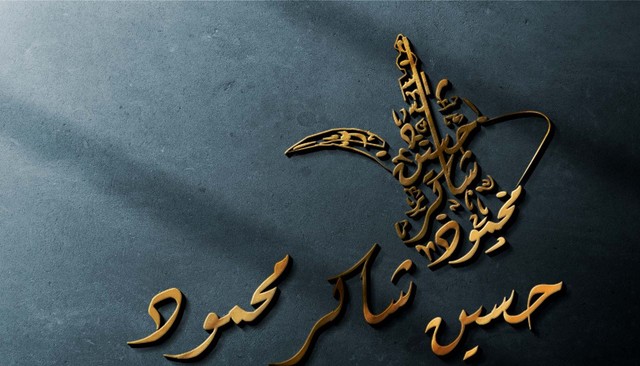 حسين
شاكر
محمود
حسين شاكر محمود